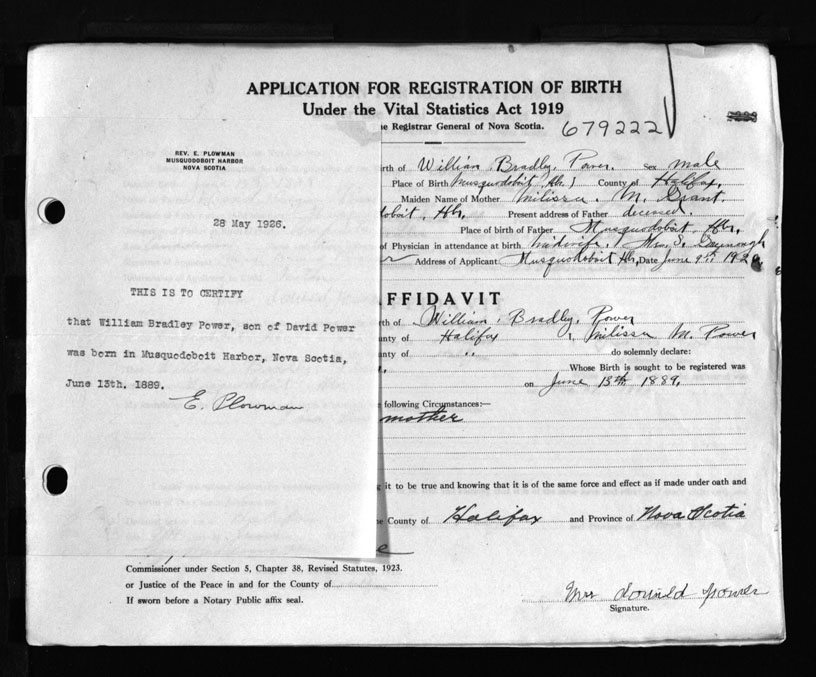 APPLICATION FOR REGISTRATION OF BIRTH
Under the Vital Statistics Act 1919
e Registrar General of Nova Scotia.
679222
REV. E. PLOWMAN
MUSQUODOBOIT HARBOR
NOVA SCOTIA
28 May 1926.
THIS IS TO CERTIFY
that William Bradley Power, son of David Power
was born in Musquodoboit Harbor, Nova Scotia,
June 13th. 1889.
E. Plowman
irth of William Bradley Power. Sex male
Place of Birth Musquodoboit Hbr) County of Halifax.
Maiden Name of Mother Milissa. M. Grant.
doboit, Hbr, Present address of Father deceased.
Place of birth of Father Musquodoboit Hbr,
of Physician in attendance at birth. midwife. Mrs.
Address of Applicant Musquodoboit Hbr, Date June 9th 192
FFIDAVIT
rth of William, Bradley, Power
unty of Halifax, Milissa M. Power
unty of ,, do solemnly declare:
Whose Birth is sought to be registered was
on June 13th 1889.
e following Circumstances:—
mother
g it to be true and knowing that it is of the same force and effect as if made under oath and
e County of Halifax and Province of Nova Scotia
Commissioner under Section 5, Chapter 38, Revised Statutes, 1923.
or Justice of the Peace in and for the County of
If sworn before a Notary Public affix seal.
Mrs Power
Signature.